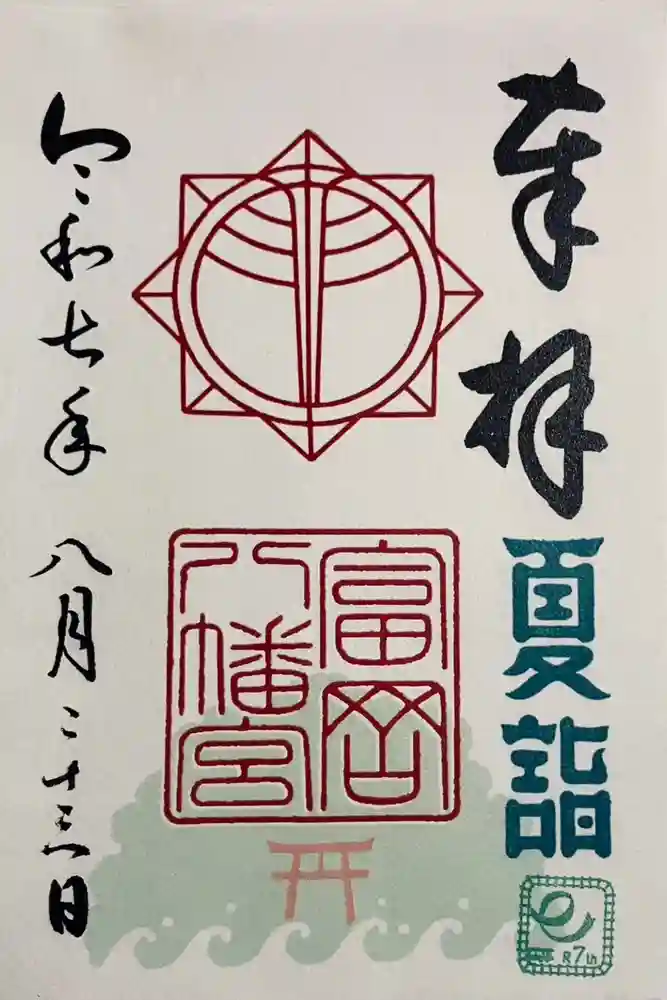 奉拝
夏詣
R7th
富岡
八幡宮
令和七年 八月二十三日